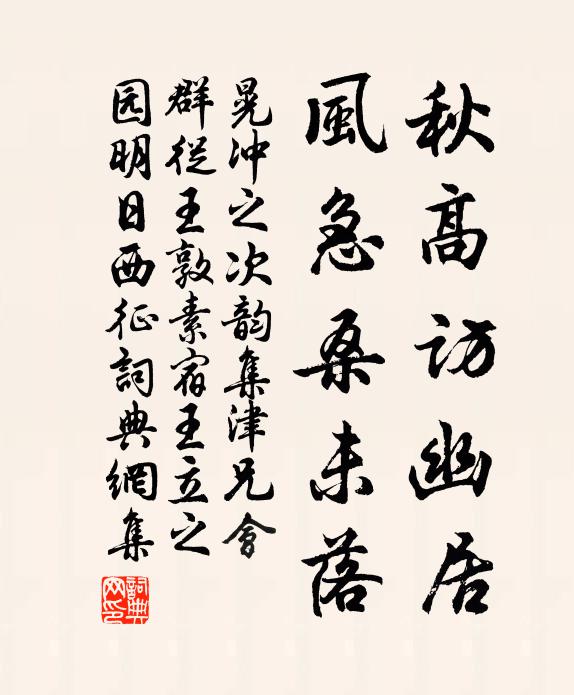 秋高訪幽居
風急桑未落
晃沖之次韵集津兄會
群從王敦素宿王立之
园明日西征詞典網集
詞典网印